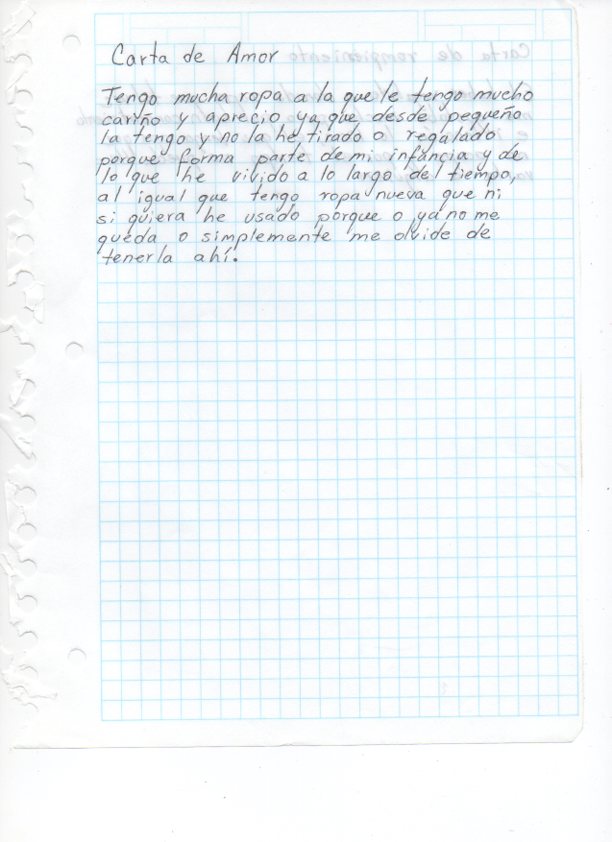 Carta de Amor
Tengo mucha ropa a la que le tengo mucho
cariño y aprecio ya que desde pequeño
la tengo y no la he tirado o regalado
porque forma parte de mi infancia y de
lo que he vivido a lo largo del tiempo,
al igual que tengo ropa nueva que ni
si quiera he usado porque o ya no me
queda o simplemente me olvide de
tenerla ahí.
Carta de rompimiento